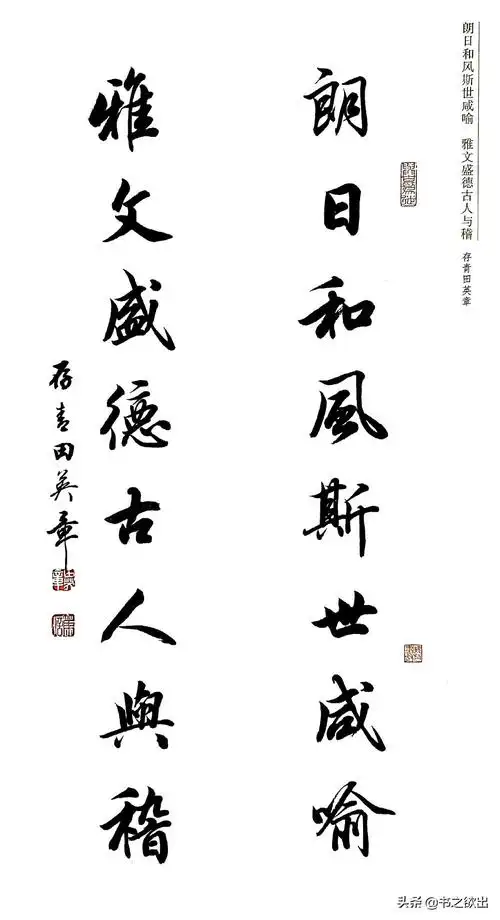 朗日和风斯世咸喻 雅文盛德古人与稽
存青田英章
朗日和風斯世咸喻
雅文盛德古人與稽
存青田英章
头条 @书之欲出